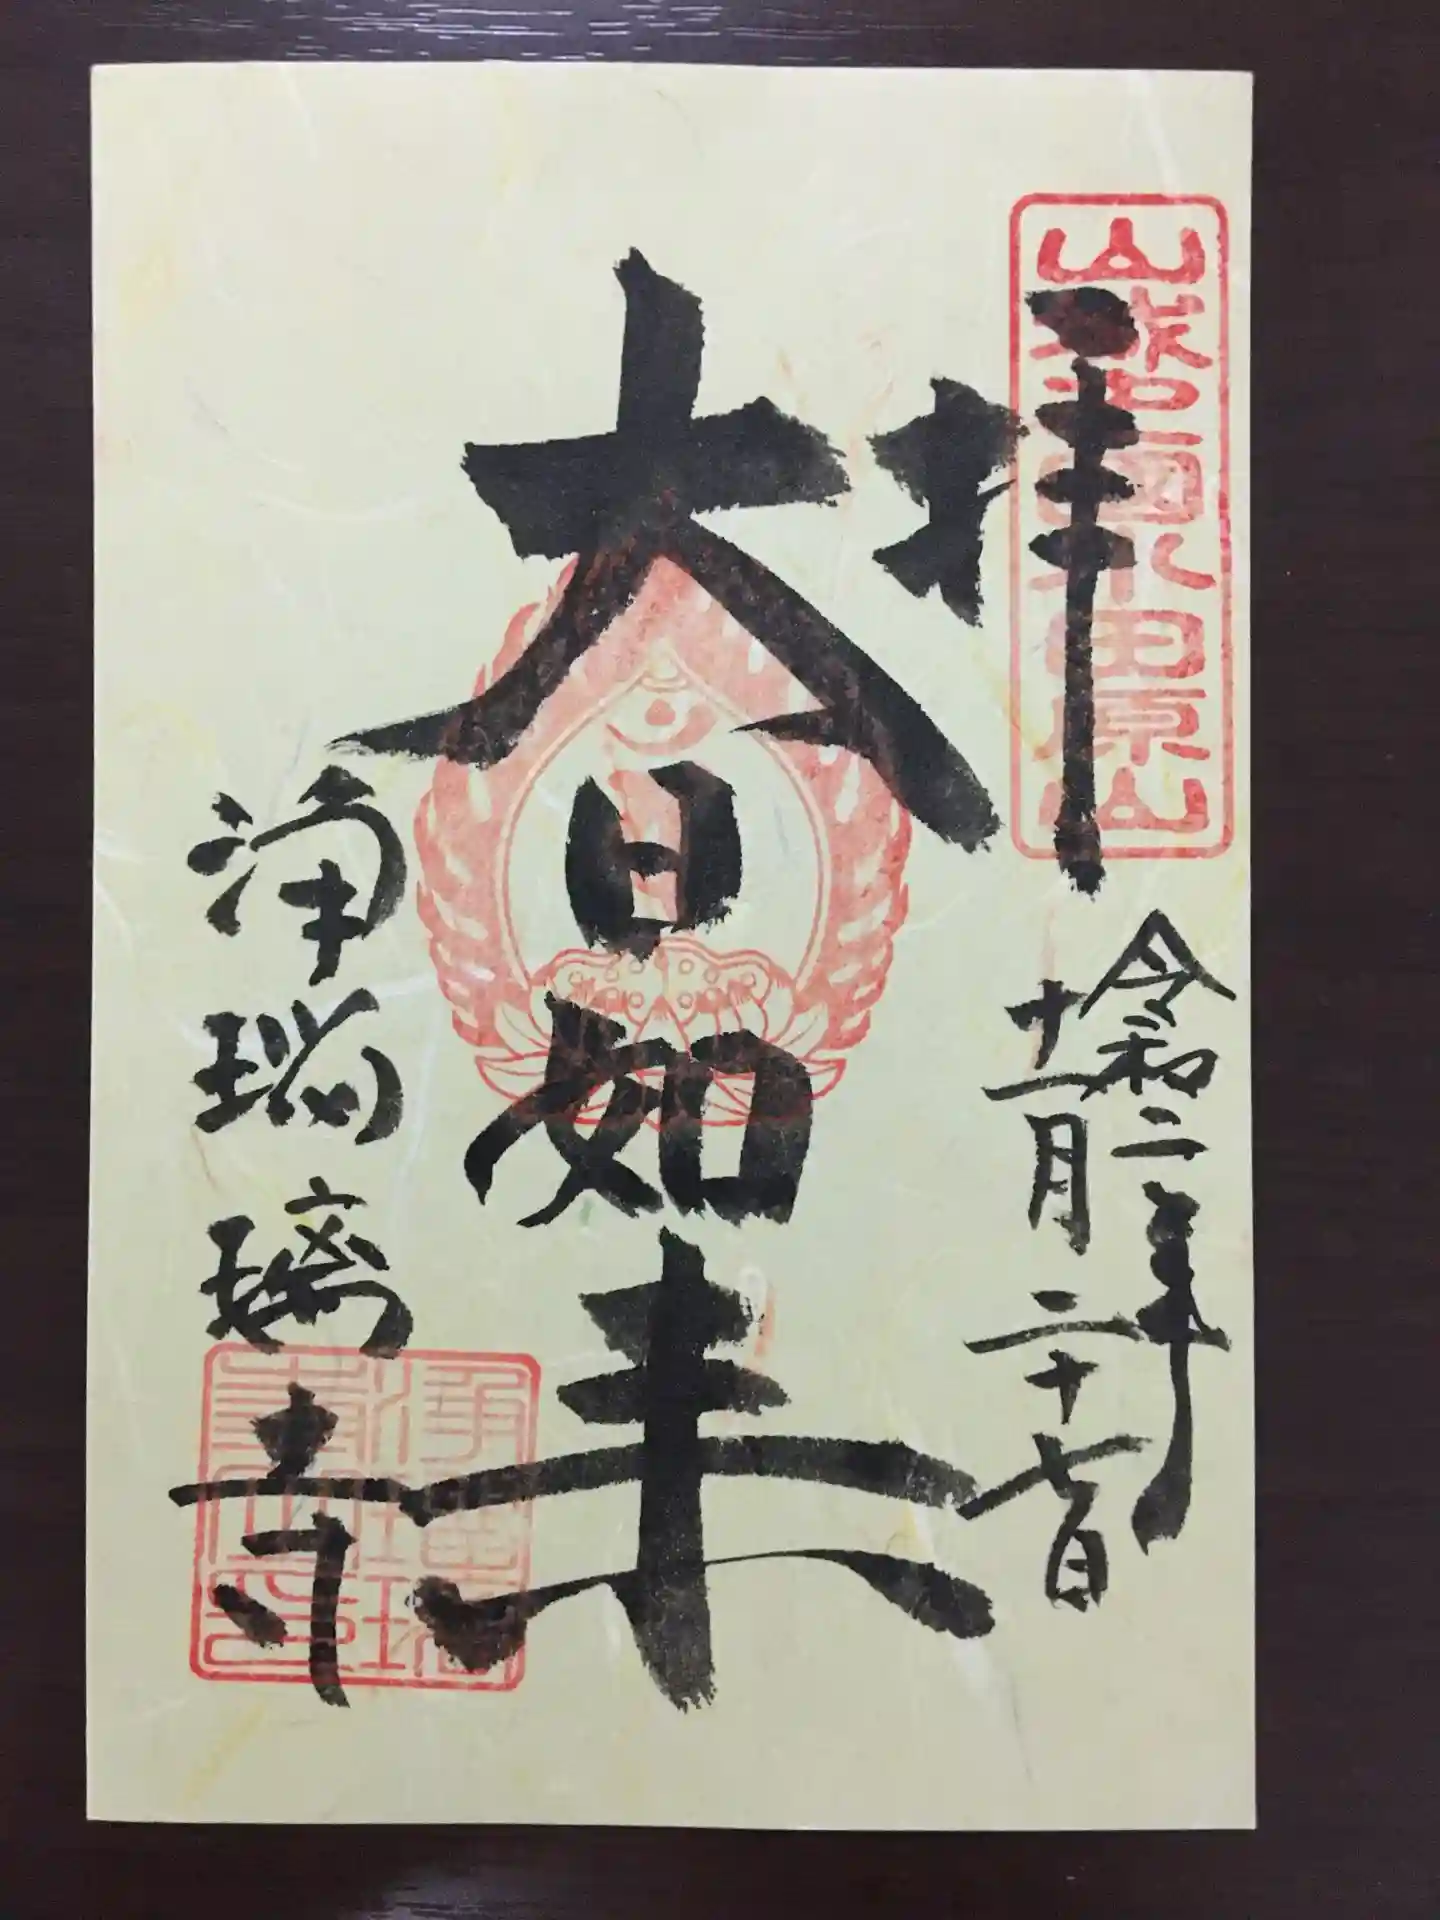 山城國小田原山
拝
令和二年
十一月二十七日
大日如来
浄瑠璃寺
浄瑠璃
寺之印